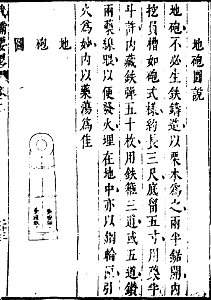 地砲圖說
地砲不必生鉄鑄造以栗木為之兩半鋸開內
挖員槽如砲式様約長三尺底留五寸用藥半
斗許內藏鉄彈五十枚用鉄箍三道或五道鑽
兩藥線眼以便發火埋在地中亦以鋼輪引
火為妙內以藥蕩為佳
地砲圖